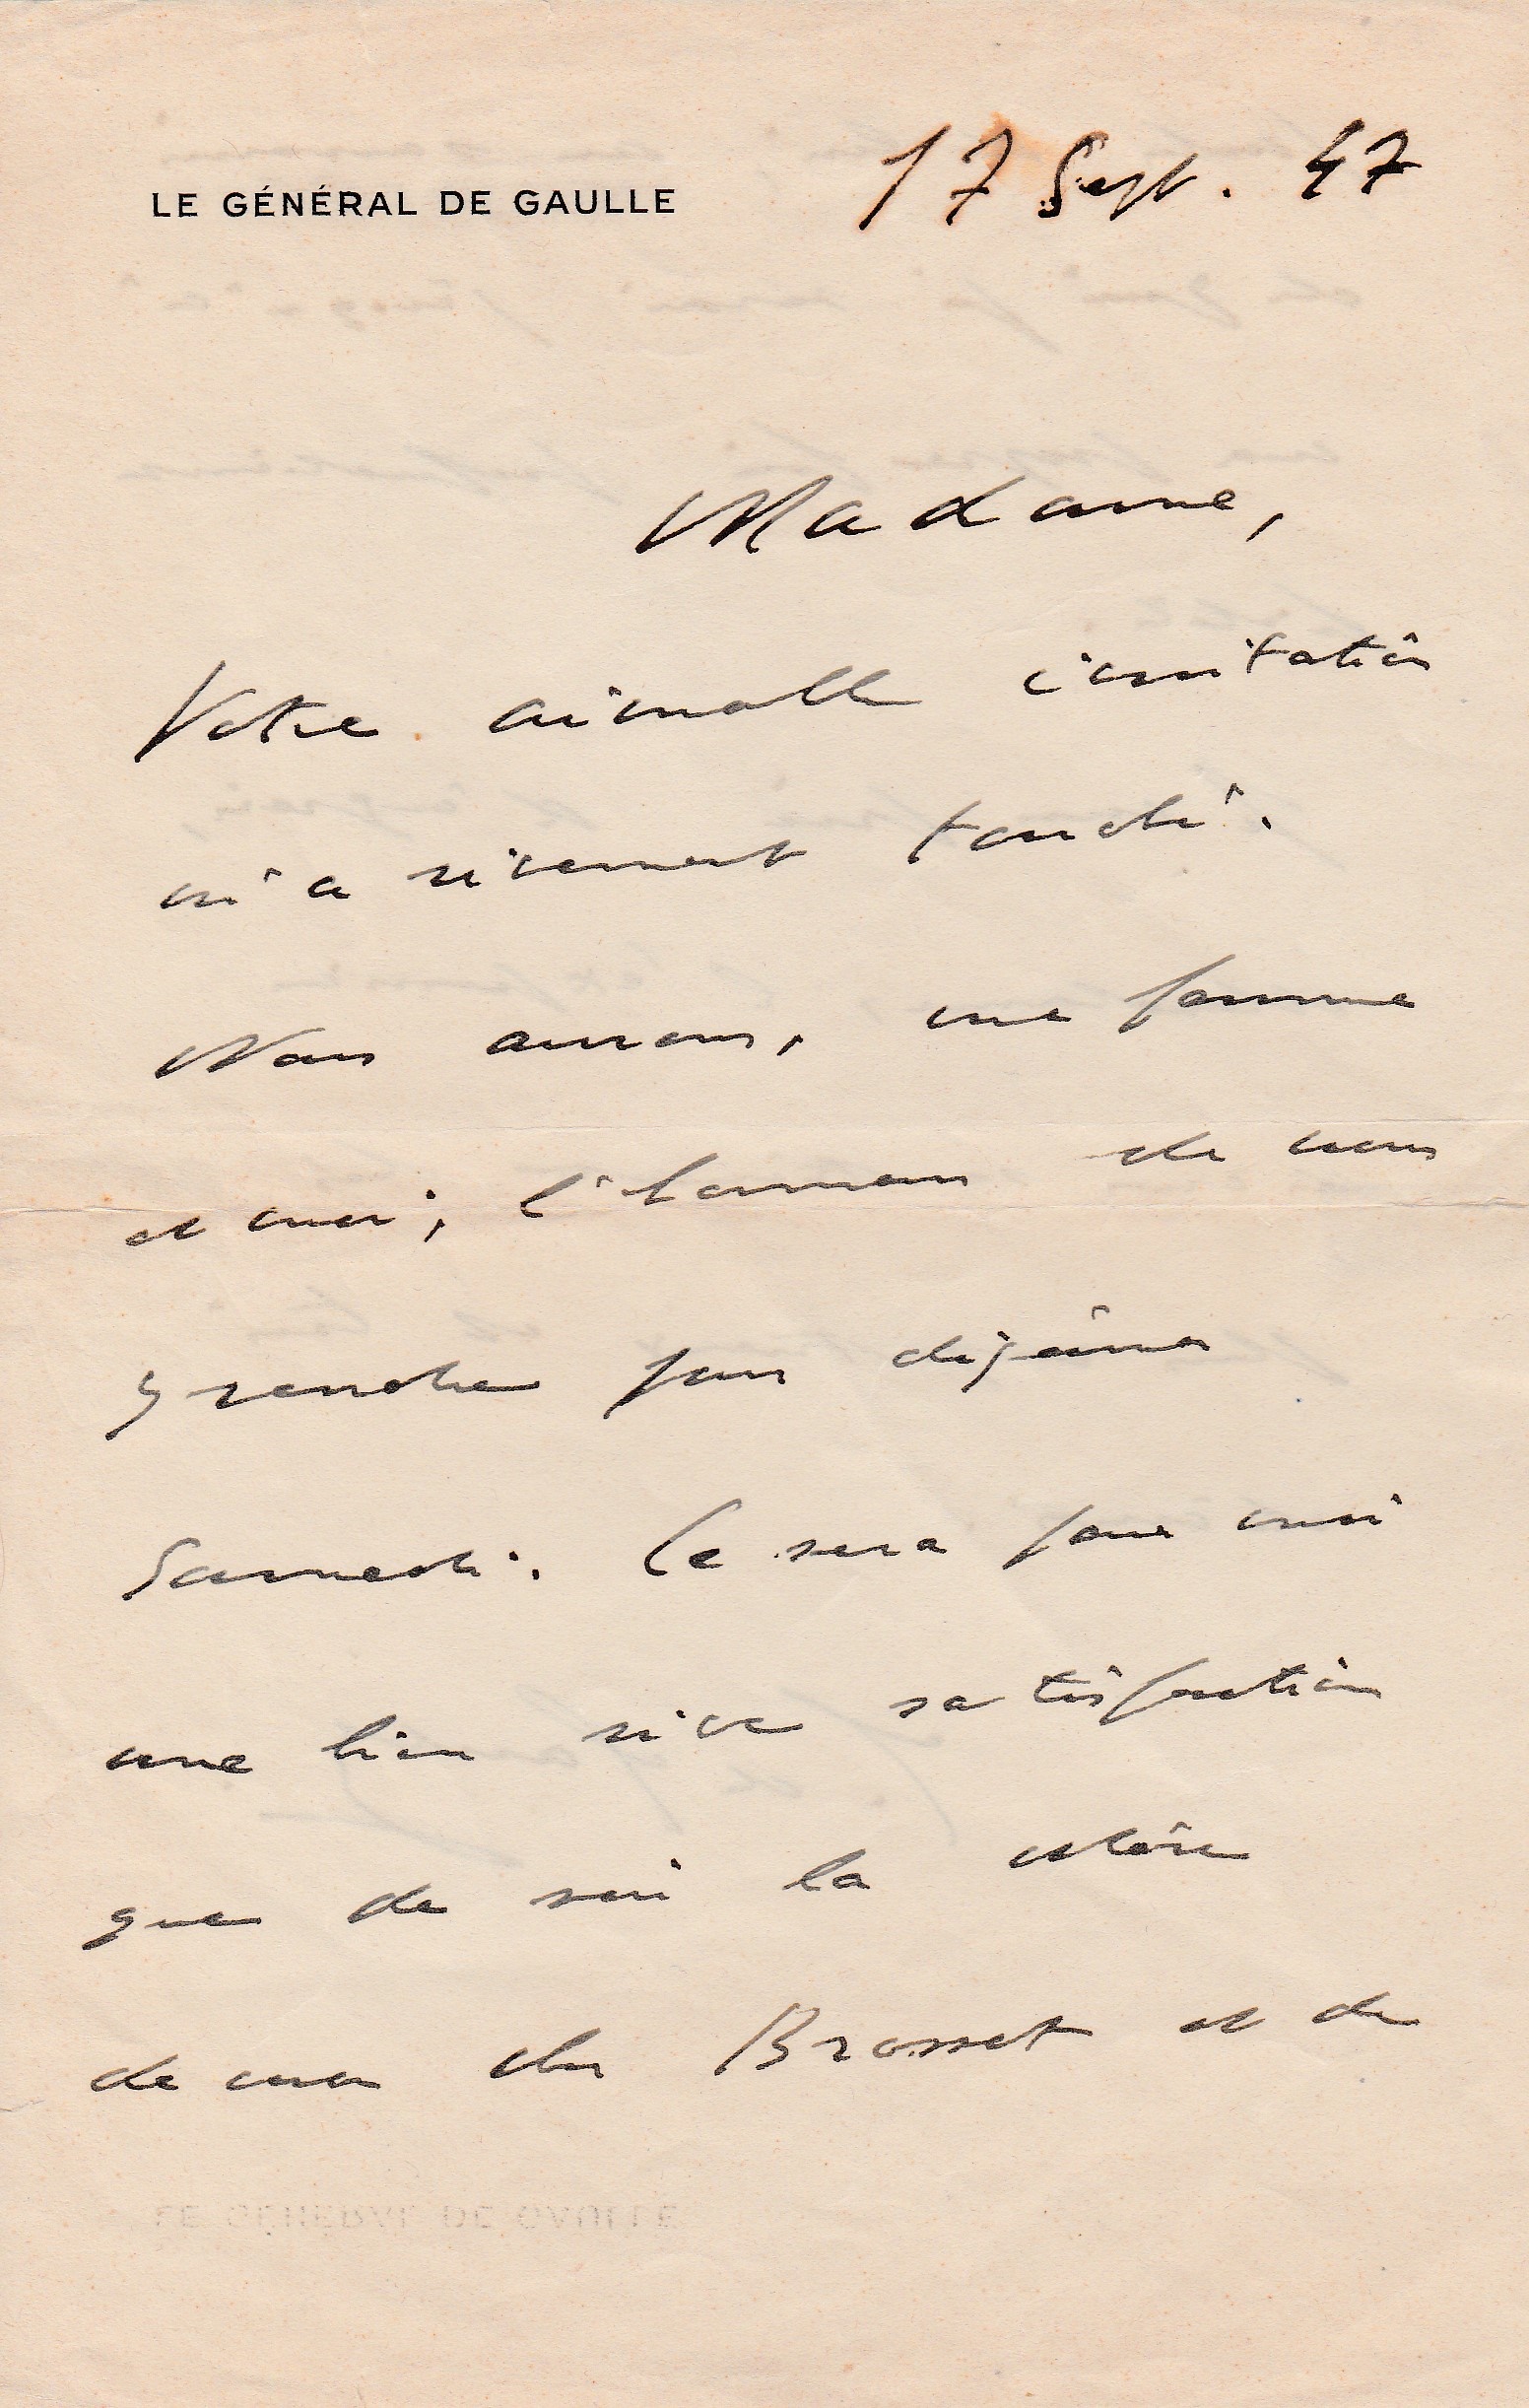 LE GÉNÉRAL DE GAULLE 17 Sept. 47
Madame,
Votre aimable invitation
m'a vivement touché.
Nous aurons, ma femme
et moi, l'honneur de nous
y rendre pour déjeuner
Samedi. Ce sera pour moi
une bien vive satisfaction
que de voir la
de mon cher Brosset et de